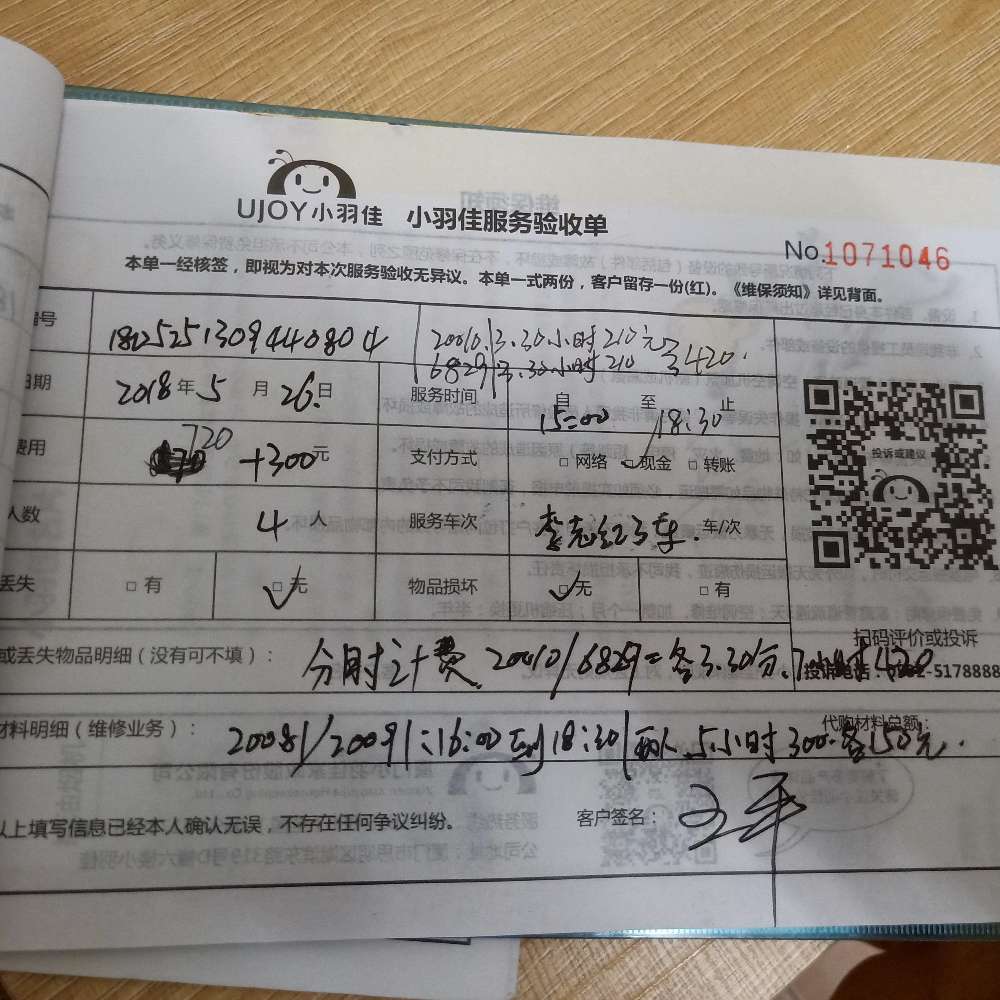 UJOY小羽佳 小羽佳服务验收单
No.1071046
本单一经核签，即视为对本次服务验收无异议。本单一式两份，客户留存一份(红)。《维保须知》详见背面。
编号 180525130944 0804 20010.13.30小时210元
6829 3.30小时210 420.
日期 2018年5月26.日 服务时间 自 至 止
15:00 18:30
费用 720 +300元 支付方式 □网络 □现金 □转账
投诉或建议
人数 4人 服务车次 李志红3车. 车/次
丢失 □有 □无 物品损坏 □无 □有
扫码评价或投诉
或丢失物品明细（没有可不填）： 分时计费 20010/6829=各3.30分.7小时420
投诉电话：0592-5178888
材料明细（维修业务）： 20081/20091:16:00到18:30 两人.5小时300.各150元.
代购材料总额：
以上填写信息已经本人确认无误，不存在任何争议纠纷。 客户签名：